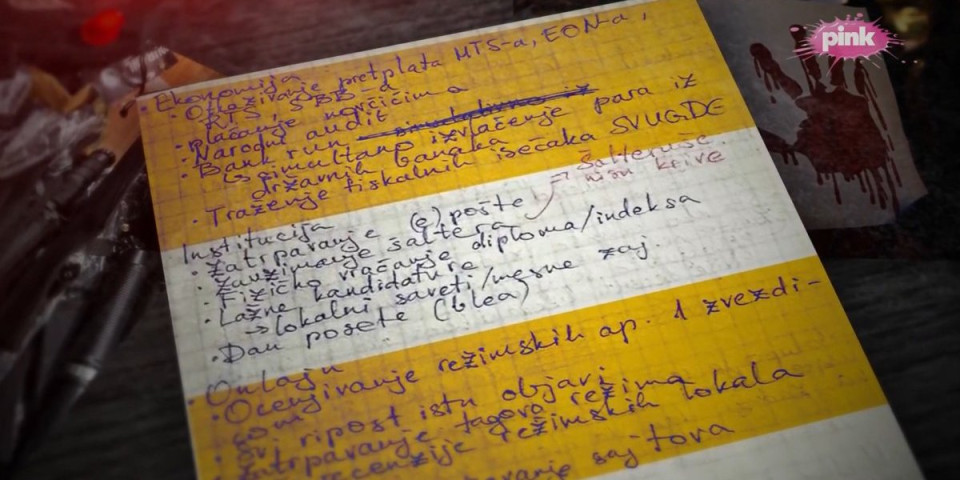 pink
Ekonomija
• Otkazivanje pretplata MTS-a, EON-a,
RTS, SBB-a
• Plaćanje novčićima
• Narodni audit
• Bank run
↳ simultano izvlačenje para iz
državnih banaka
• Traženje fiskalnih isečaka SVUGDE
Institucija
• Zatrpavanje (e)pošte → Šalteruše nisu krive
• Zauzimanje šaltera
• Fizičko vraćanje diploma/indeksa
• Lažne kandidature
→ lokalni saveti/mesne zaj.
• Dan posete (blea)
• Onlajn
• Ocenjivanje režimskih ap. 1 zvezdi-
com
• Svi ripost istu objavi
• Zatrpavanje tagova režima
• recenzije režimskih lokala
sajtova